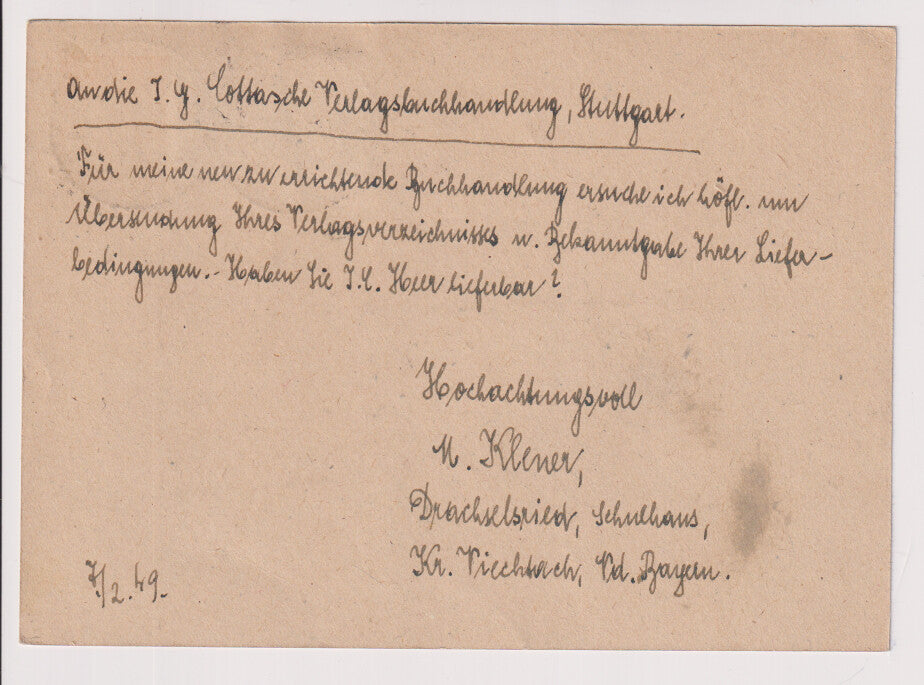 An die J. G. Cottasche Verlagsbuchhandlung, Stuttgart.
Für meine neu zu errichtende Buchhandlung ersuche ich höfl. um
Übersendung Ihres Verlagsverzeichnisses u. Bekanntgabe Ihrer Liefer-
bedingungen. - Haben Sie J. C. Heer lieferbar?
Hochachtungsvoll
M. Klener,
Drachselsried, Schulhaus,
Kr. Viechtach, Nd. Bayern.
7./2. 49.